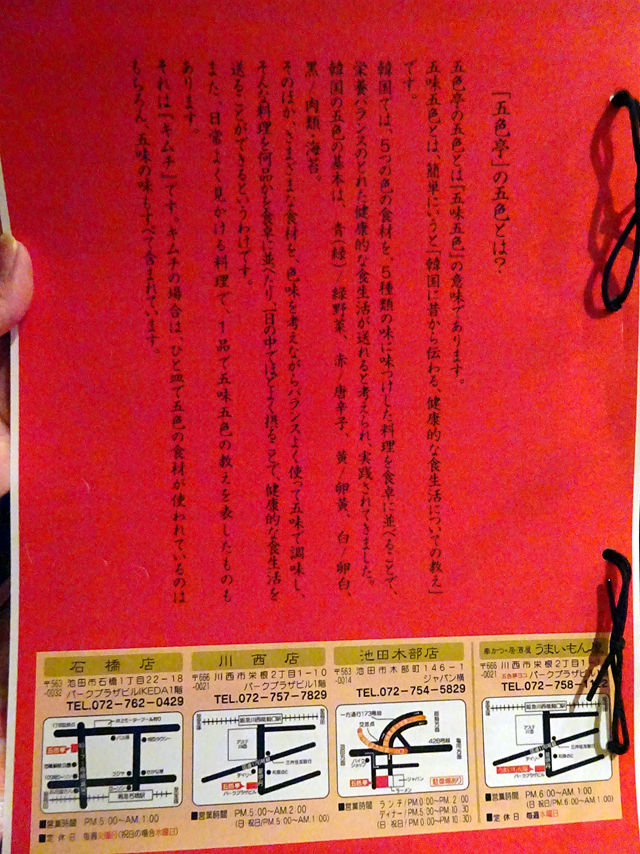 「五色亭」の五色とは？
五色亭の五色とは『五味五色』の意味であります。
五味五色とは、簡単にいうと「韓国に昔から伝わる、健康的な食生活についての教え」
です。
韓国では、5つの色の食材を、5種類の味に味つけした料理を食卓に並べることで、
栄養バランスのとれた健康的な食生活が送れると考えられ、実践されてきました。
韓国の五色の基本は、青(緑)/緑野菜、赤/唐辛子、黄/卵黄、白/卵白、
黒/肉類・海苔。
そのほか、さまざまな食材を、色味を考えながらバランスよく使って五味で調味し、
そんな料理を何品かを食卓に並べたり、一日の中でほどよく摂ることで、健康的な食生活を
送ることができるというわけです。
また、日常よく見かける料理で、1品で五味五色の教えを表したものも
あります。
それは『キムチ』です。キムチの場合は、ひと皿で五色の食材が使われているのは
もちろん、五味の味もすべて含まれています。
石橋店
〒563-0032 池田市石橋1丁目22-18
パークプラザビルIKEDA1階
TEL.072-762-0429
■営業時間 PM.5:00〜AM.1:00
■定休日 毎週火曜日(祝日の場合水曜日)
川西店
〒666-0021 川西市栄根2丁目1-10
パークプラザビル1階
TEL.072-757-7829
■営業時間 PM.5:00〜AM.2:00
(日・祝日/PM.5:00〜AM.1:00)
池田木部店
〒563-0014 池田市木部町146-1
ジャパン横
TEL.072-754-5829
駐車場あり
■営業時間 ランチ/PM.0:00〜PM.2:00
ディナー/PM.5:00〜PM.10:30
(日・祝日/PM.0:00〜PM.10:30)
串かつ・居酒屋 うまいもん
〒666-0021 川西市栄根2丁目1
パークプラザビル
TEL.072-758-
■営業時間 PM.6:00〜AM.1:00
(日・祝日/PM.6:00〜AM.1:00)
■定休日 毎週水曜日